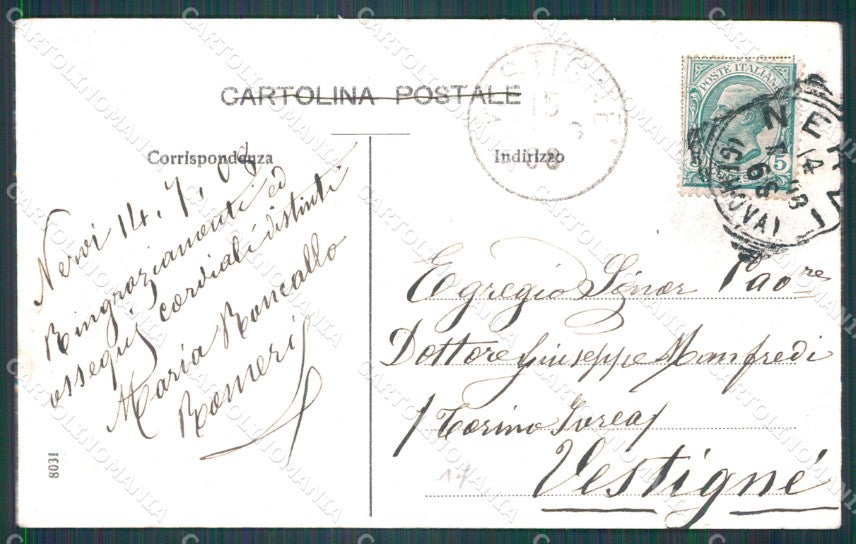 CARTOLINA POSTALE
Corrispondenza
Indirizzo
POSTE ITALIANE
5
VESTIGNE
15
08
NERVI
(GENOVA)
14
08
Nervi 14. 7. 08
Ringraziamenti ed
ossequi cordiali distinti
Maria Roncallo
Romeri
Egregio Signor
Dottore Giuseppe Manfredi
/ Torino Ivrea /
Vestigné
8031
CARTOLINOMANIA